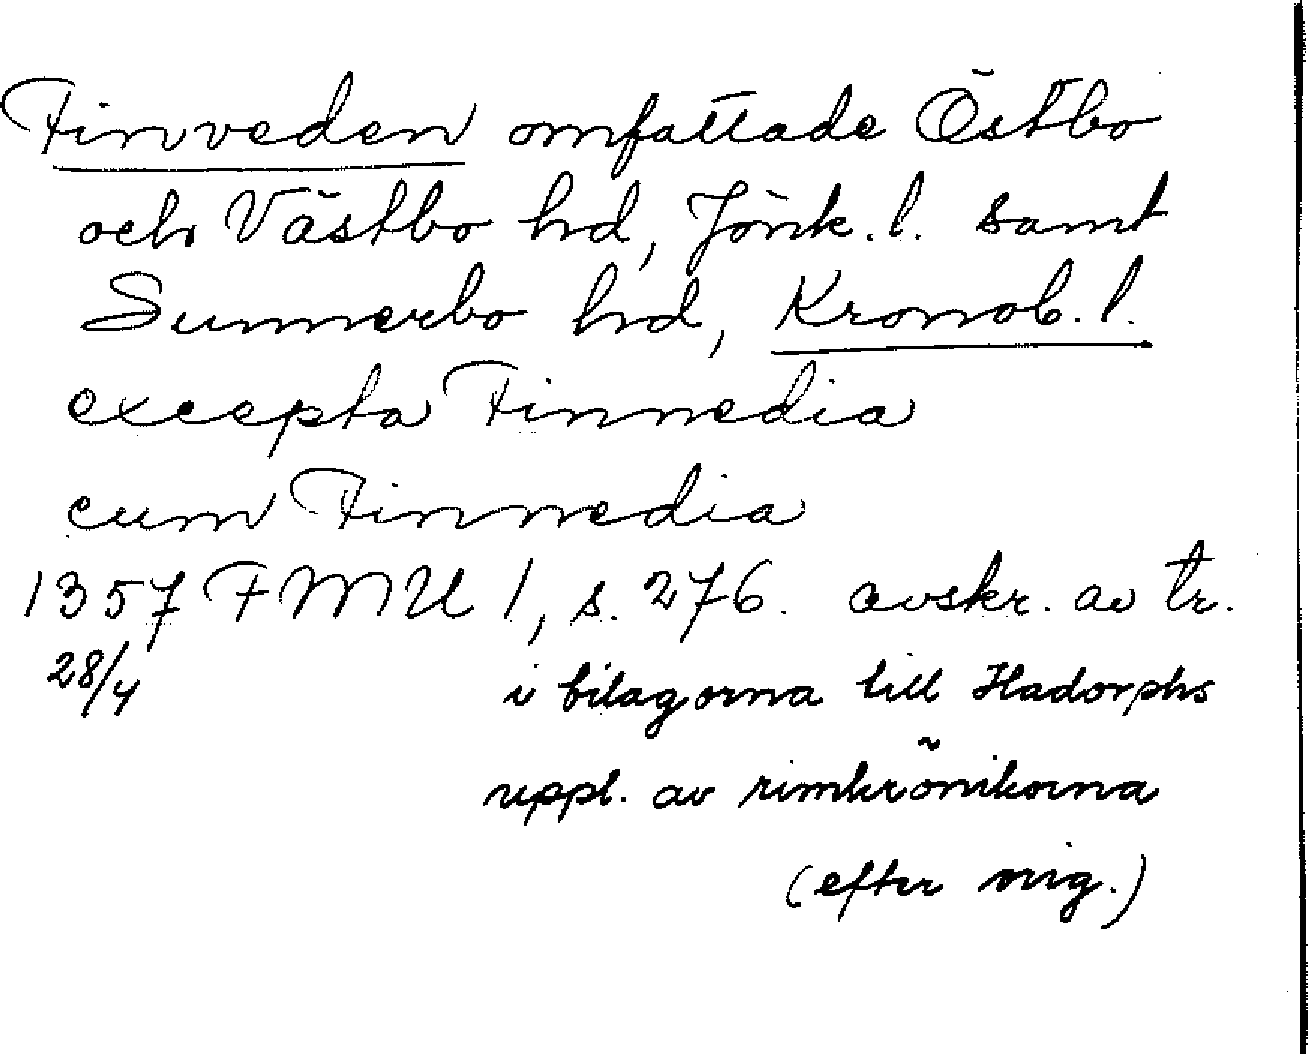 Finveden omfattade Östbo
och Västbo hd, Jönk. l. samt
Sunnerbo hd, Kronob. l.
excepta Finnedia
cum Finnedia
1357 FMU 1, s. 276. avskr. av tr.
28/4 i bilagorna till Hadorphs
uppl. av rimkrönikorna
(efter orig.)